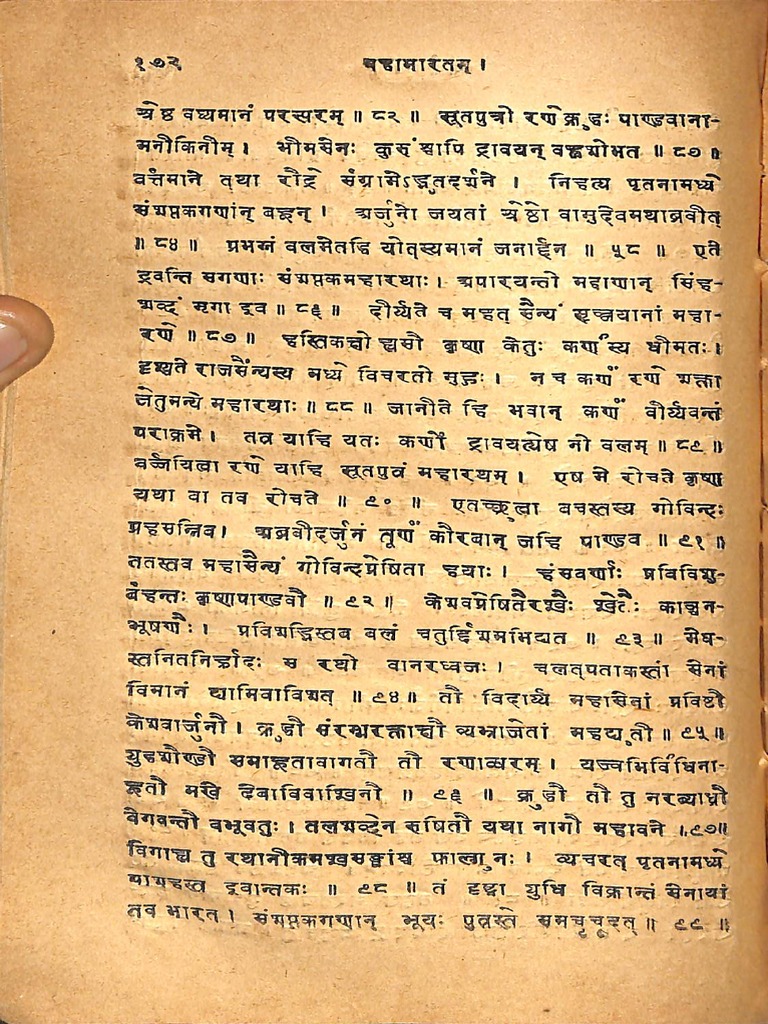 १७२ महाभारतम् ।
श्रेष्ठ वध्यमानं परस्परम् ॥ ८२ ॥ सूतपुत्रो रणे क्रुद्धः पाण्डवाना-
मनीकिनीम् । भीमसेनः कुरूंश्चापि द्रावयन् बह्वशोभत ॥ ८३ ॥
वर्त्तमाने तथा रौद्रे संग्रामेऽद्भुतदर्शने । निहत्य पृतनामध्ये
संशप्तकगणान् बहून् । अर्जुनो जयतां श्रेष्ठो वासुदेवमथाब्रवीत्
॥ ८४ ॥ प्रभग्नं बलमेतद्धि योत्स्यमानं जनार्द्दन ॥ ५८ ॥ एते
द्रवन्ति सगणाः संशप्तकमहारथाः । अपारयन्तो मद्बाणान् सिंह-
शब्दं मृगा इव ॥ ८६ ॥ दीर्य्यते च महत् सैन्यं सृञ्जयानां महा-
रणे ॥ ८७ ॥ हस्तिकक्षो ह्यसौ कृष्ण केतुः कर्णस्य धीमतः ।
दृश्यते राजसैन्यस्य मध्ये विचरतो मुहुः । न च कर्णं रणे शक्ता
जेतुमन्ये महारथाः ॥ ८८ ॥ जानीते हि भवान् कर्णं वीर्य्यवन्तं
पराक्रमे । तत्र याहि यतः कर्णो द्रावयत्येष नो बलम् ॥ ८९ ॥
वर्ज्जयित्वा रणे याहि सूतपुत्रं महारथम् । एष मे रोचते कृष्ण
यथा वा तव रोचते ॥ ९० ॥ एतच्छ्रुत्वा वचस्तस्य गोविन्दः
प्रहसन्निव । अब्रवीदर्जुनं तूर्णं कौरवान् जहि पाण्डव ॥ ९१ ॥
ततस्तव महासैन्यं गोविन्दप्रेषिता हयाः । हंसवर्णाः प्रविविशु-
र्वहन्तः कृष्णपाण्डवौ ॥ ९२ ॥ केशवप्रेषितैरश्वैः श्वेतैः काञ्चन-
भूषणैः । प्रविशद्भिस्तव बलं चतुर्द्दिशमभिद्यत ॥ ९३ ॥ मेघ-
स्तनितनिर्ह्रादः स रथो वानरध्वजः । चलत्पताकस्तां सेनां
विमानं द्यामिवाविशत् ॥ ९४ ॥ तौ विदार्य्य महासेनां प्रविष्टौ
केशवार्जुनौ । क्रुद्धौ संरम्भरक्ताक्षौ व्यभ्राजेतां महाद्युती ॥ ९५ ॥
युद्धशौण्डौ समाहूतावागतौ तौ रणाध्वरम् । यज्वभिर्विधिना-
हूतौ मखे देवाविवाश्विनौ ॥ ९६ ॥ क्रुद्धौ तौ तु नरव्याघ्रौ
वेगवन्तौ बभूवतुः । तलशब्देन रुषितौ यथा नागौ महावने । ९७॥
विगाह्य तु रथानीकमश्वसङ्घांश्च फाल्गुनः । व्यचरत् पृतनामध्ये
पाशहस्त इवान्तकः ॥ ९८ ॥ तं दृष्ट्वा युधि विक्रान्तं सेनायां
तव भारत । संशप्तकगणान् भूयः पुत्रस्ते समचूचुदत् ॥ ९९ ॥